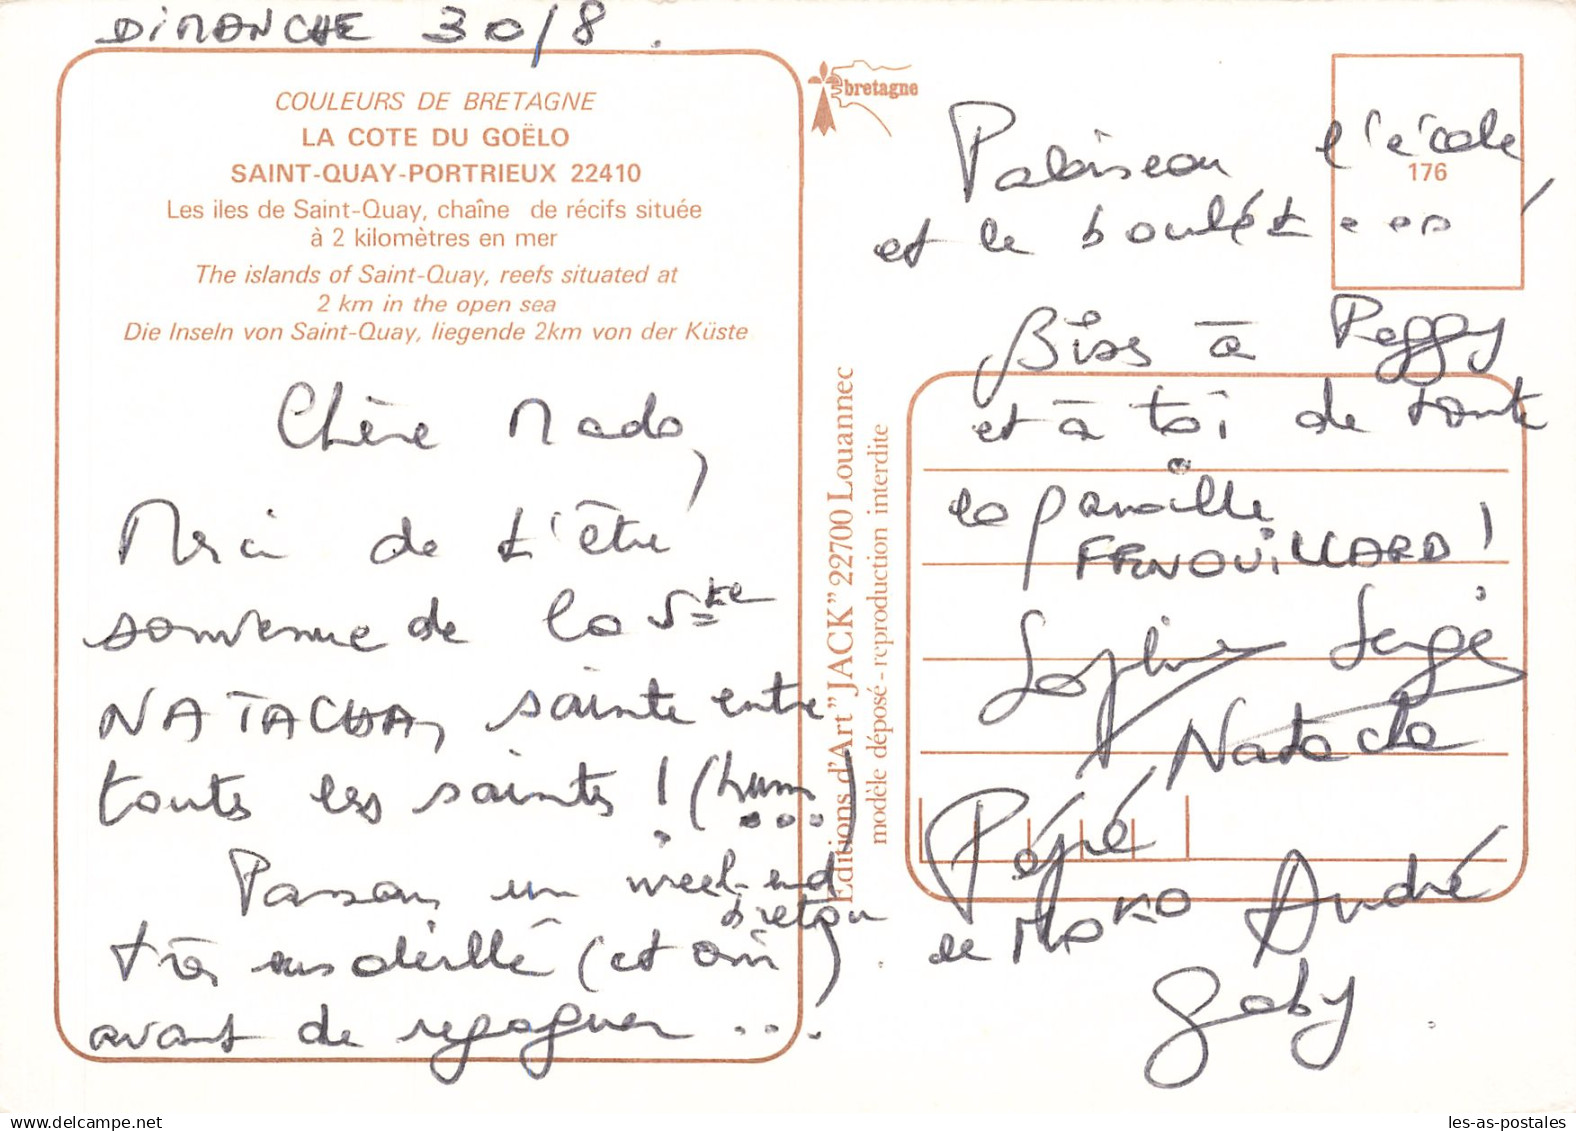 DIMANCHE 30/8.
COULEURS DE BRETAGNE
LA COTE DU GOËLO
SAINT-QUAY-PORTRIEUX 22410
Les iles de Saint-Quay, chaîne de récifs située
à 2 kilomètres en mer
The islands of Saint-Quay, reefs situated at
2 km in the open sea
Die Inseln von Saint-Quay, liegende 2km von der Küste
Chère Mado,
Merci de t'être
souvenue de la Ste
NATACHA, sainte entre
toutes les saintes ! (hum ...)
Passons un week-end
breton
très ensoleillé (et oui)
avant de regagner ...
bretagne
Editions d'Art "JACK" 22700 Louannec
modèle déposé - reproduction interdite
176
Palaiseau l'école,
et le boulot...
Bises à Peggy
et à toi de toute
la famille
FENOUILLARD !
Sophie Serge
Natacha
Pépé
de MOKO André
Gaby
les-as-postales